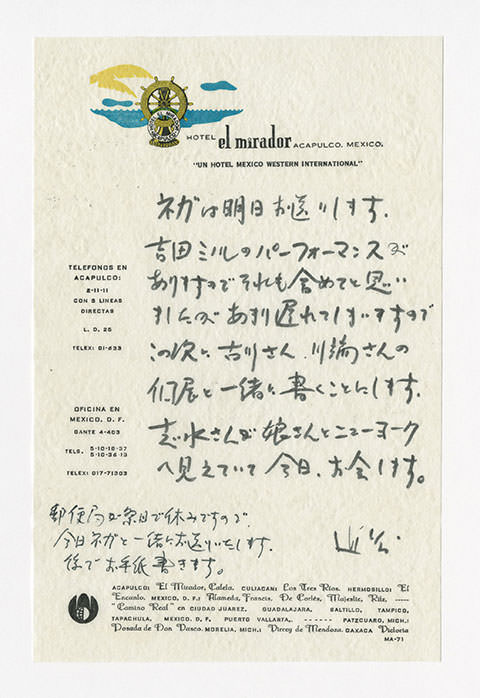 HOTEL el mirador ACAPULCO, MEXICO.
"UN HOTEL MEXICO WESTERN INTERNATIONAL"
ネガは明日お送りします.
吉田ミノルのパーフォーマンスが
ありますのでそれも含めてと思い
ましたが あまり遅れてしまいますので
この次に 吉川さん. 川端さんの
個展と一緒に書くことにします.
志水さんが娘さんとニューヨーク
へ見えていて 今日、お会します。
郵便局が祭日で休みですので.
今日ネガと一緒にお送りいたします.
後でお手紙書きます。
TELEFONOS EN
ACAPULCO:
2-11-11
CON 5 LINEAS
DIRECTAS
L. D. 25
TELEX: 01-633
OFICINA EN
MEXICO, D. F.
GANTE 4-403
TELS. 5-10-10-37
5-10-36-13
TELEX: 017-71303
ACAPULCO: El Mirador, Caleta. CULIACAN: Los Tres Rios. HERMOSILLO: El
Encanto. MEXICO, D. F.: Alameda, Francis, De Cortés, Majestic, Ritz, -----
"Camino Real" en CIUDAD JUAREZ, GUADALAJARA, SALTILLO, TAMPICO,
TAPACHULA, MEXICO, D. F. PUERTO VALLARTA,. ------ PATZCUARO, MICH.:
Posada de Don Vasco. MORELIA, MICH.: Virrey de Mendoza. OAXACA Victoria
MA-71